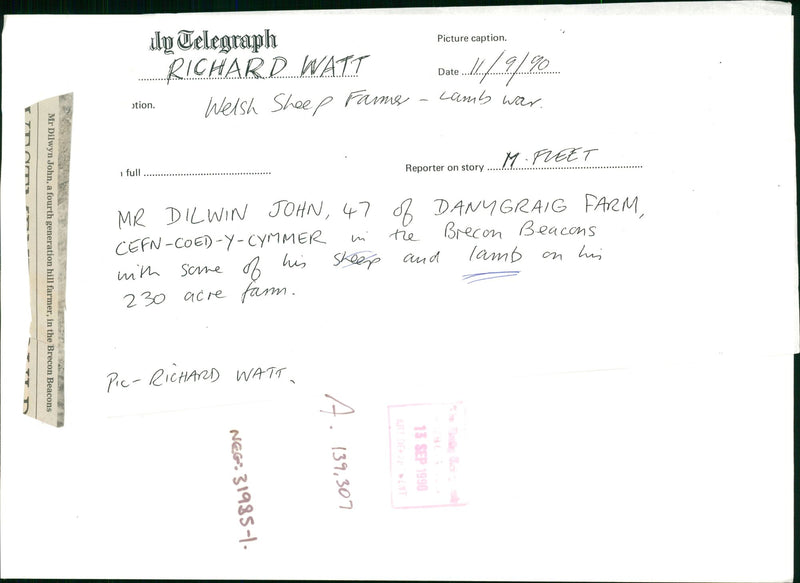 ly Telegraph
Picture caption.
RICHARD WATT
Date 11/9/90
tion.
Welsh Sheep Farmer - Lamb war.
full
Reporter on story M. FLEET
MR DILWIN JOHN, 47 of DANYGRAIG FARM,
CEFN-COED-Y-CYMMER in the Brecon Beacons
with some of his sheep and lamb on his
230 acre farm.
Pic - RICHARD WATT.
Mr Dilwyn John, a fourth generation hill farmer, in the Brecon Beacons
NEG: 31985-1.
A. 139,307
13 SEP 1990